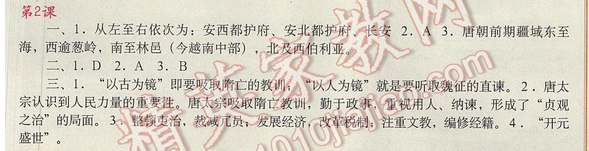 第2课
一、1．从左至右依次为：安西都护府、安北都护府、长安 2．A 3．唐朝前期疆域东至
海，西逾葱岭，南至林邑（今越南中部），北及西伯利亚。
二、1．D 2．A 3．B
三、1．“以古为镜”即要吸取隋亡的教训；“以人为镜”就是要听取魏征的直谏。2．唐太
宗认识到人民力量的重要性。唐太宗吸取隋亡教训，勤于政事，重视用人、纳谏，形成了“贞观
之治”的局面。3．整顿吏治，裁减冗员；发展经济，改革税制；注重文教，编修经籍。4．“开元
盛世”。
精英家教网